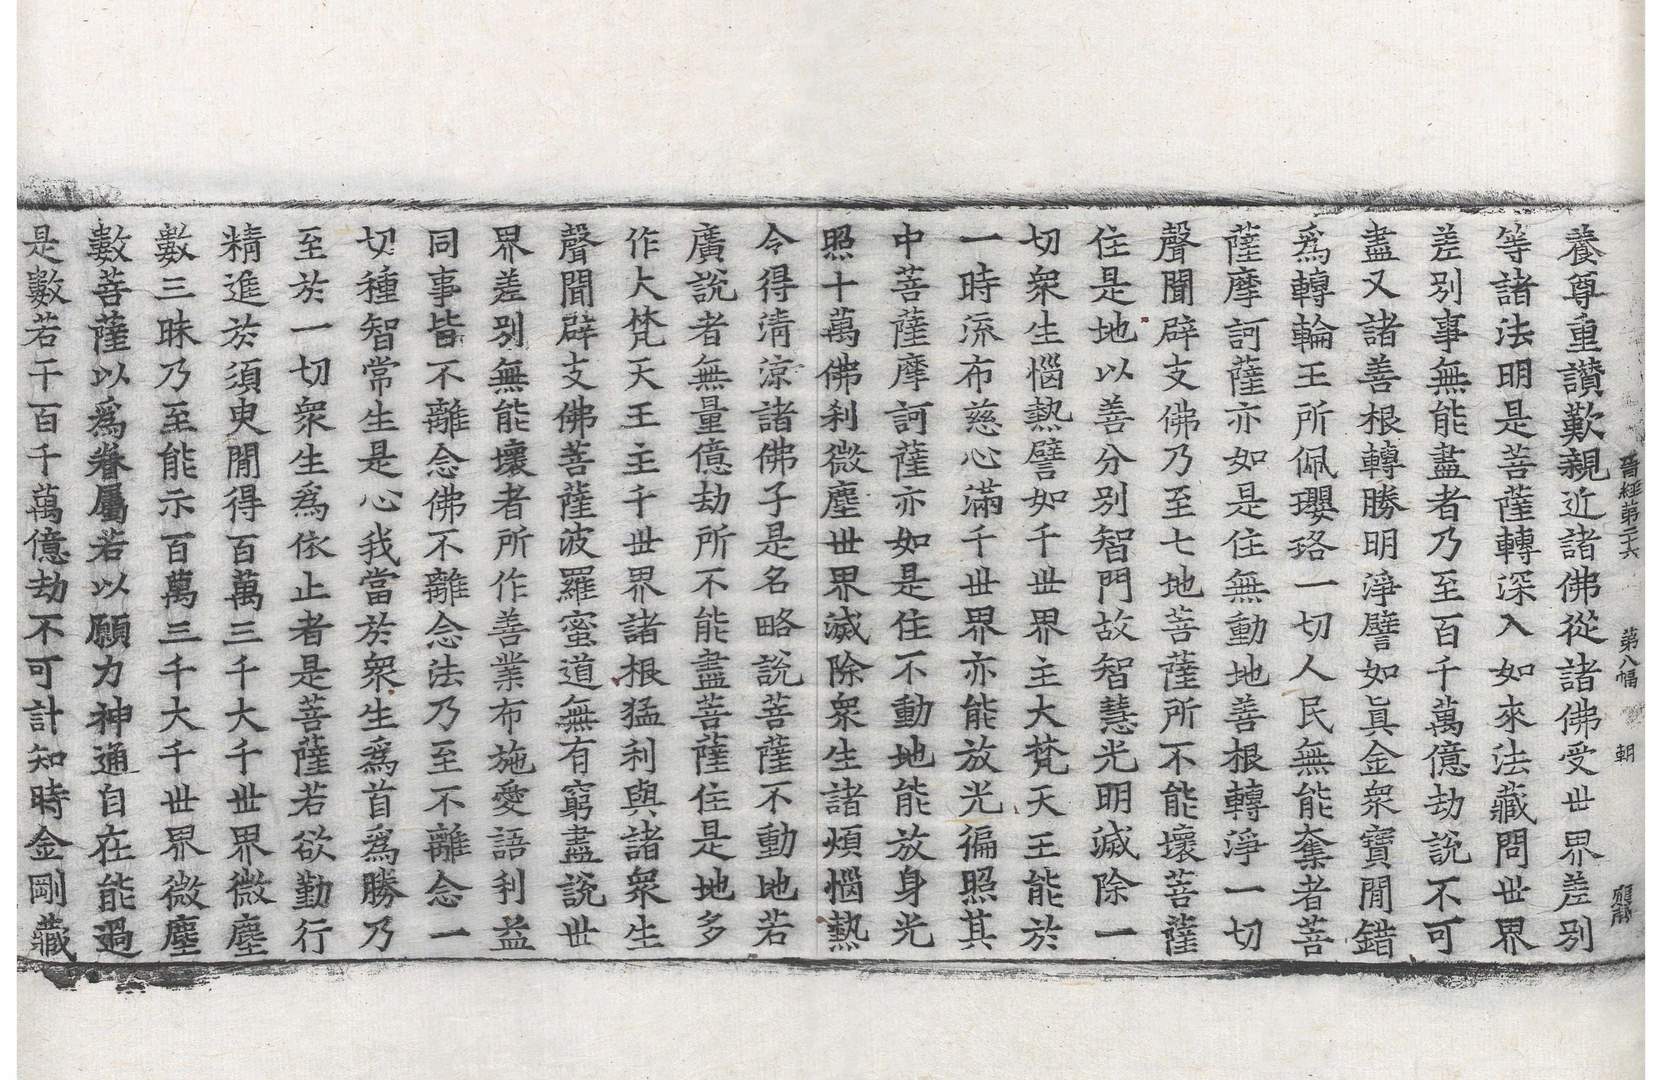 晉經第二十六 第八幅 朝
養尊重讃歎親近諸佛從諸佛受世界差別
等諸法明是菩薩轉深入如來法藏問世界
差別事無能盡者乃至百千萬億劫說不可
盡又諸善根轉勝明淨譬如眞金衆寶閒錯
爲轉輪王所佩瓔珞一切人民無能奪者菩
薩摩訶薩亦如是住無動地善根轉淨一切
聲聞辟支佛乃至七地菩薩所不能壞菩薩
住是地以善分別智門故智慧光明滅除一
切衆生惱熱譬如千世界主大梵天王能於
一時流布慈心滿千世界亦能放光徧照其
中菩薩摩訶薩亦如是住不動地能放身光
照十萬佛刹微塵世界滅除衆生諸煩惱熱
令得清涼諸佛子是名略說菩薩不動地若
廣說者無量億劫所不能盡菩薩住是地多
作大梵天王主千世界諸根猛利與諸衆生
聲聞辟支佛菩薩波羅蜜道無有窮盡說世
界差別無能壞者所作善業布施愛語利益
同事皆不離念佛不離念法乃至不離念一
切種智常生是心我當於衆生爲首爲勝乃
至於一切衆生爲依止者是菩薩若欲勤行
精進於須臾閒得百萬三千大千世界微塵
數三昧乃至能示百萬三千大千世界微塵
數菩薩以爲眷屬若以願力神通自在能過
是數若干百千萬億劫不可計知時金剛藏